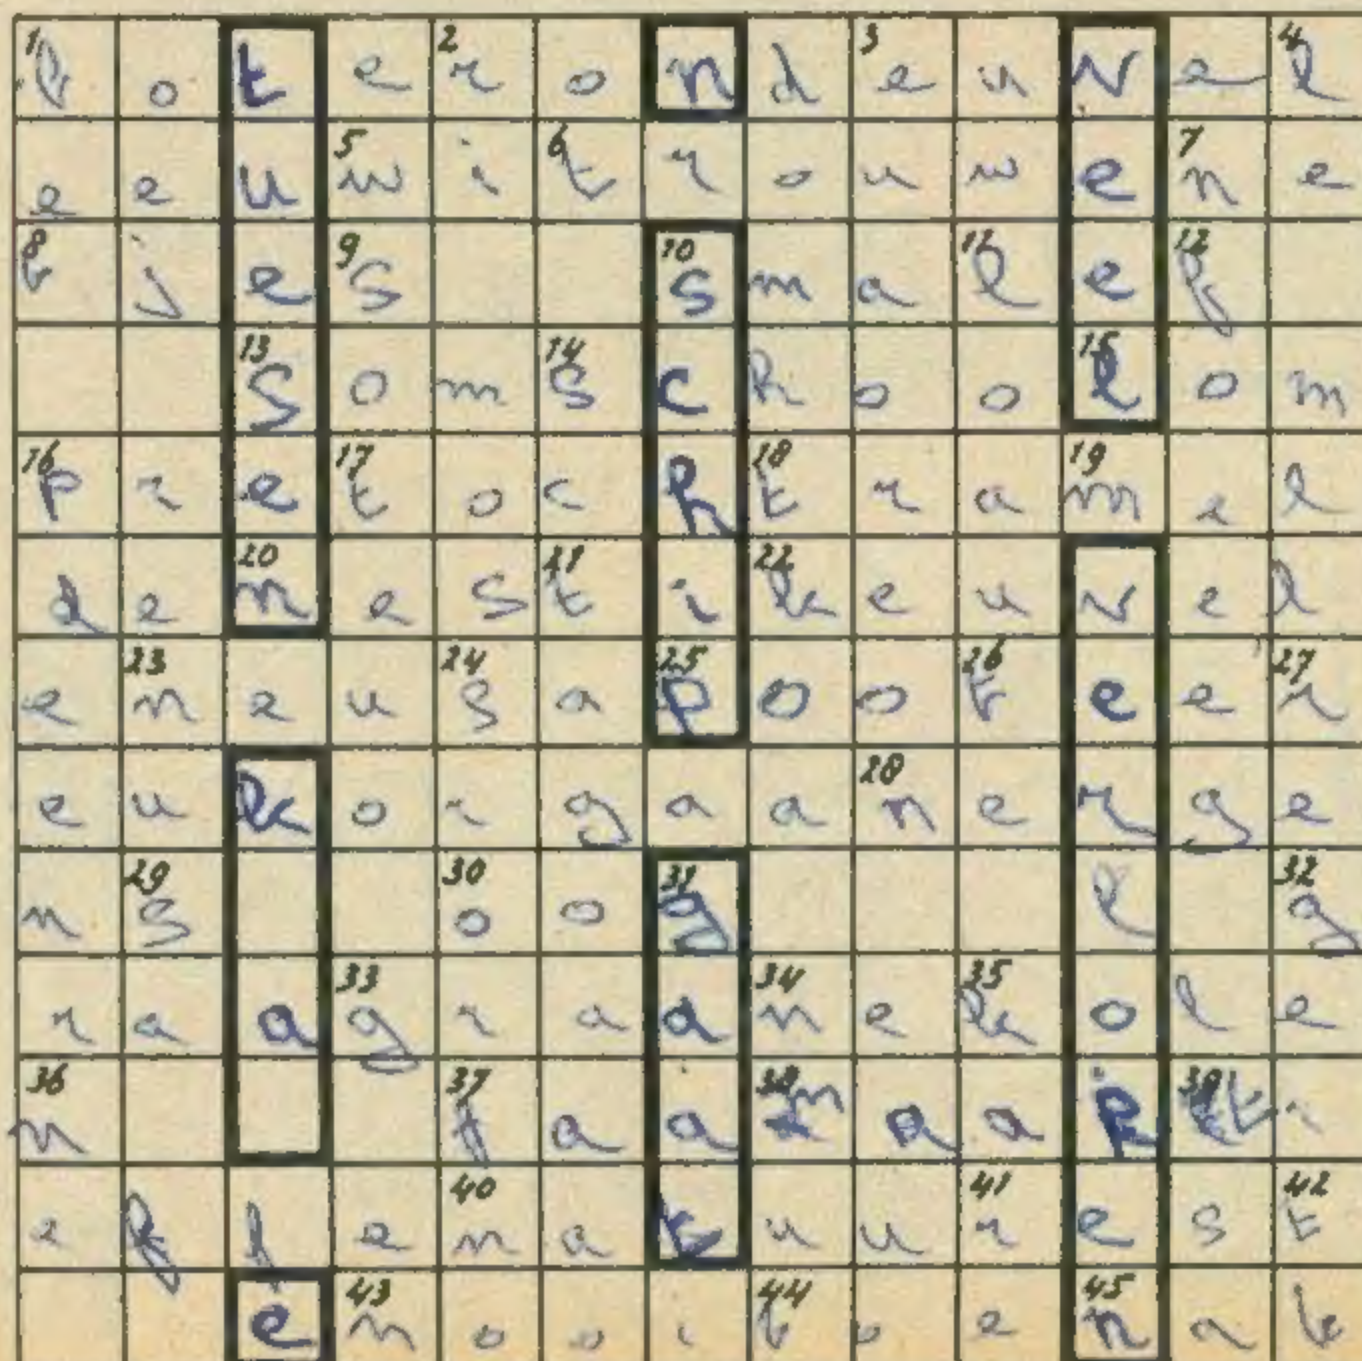 1 b o t e 2 r o n d 3 e u v e 4 l
e e u 5 w i 6 t r o u w e 7 n e
8 b j e 9 s 10 s m a 11 l e 12 f
13 s o m 14 s c h o o 15 l o m
16 p r e 17 t o c h 18 t r a 19 m e l
d e 20 n e s 21 t i 22 k e u v e l
e 23 n e u 24 s a 25 p o o 26 t e e 27 r
e u k o r g a a 28 n e r g e
n 29 s 30 o o 31 g l 32 g
r a a 33 g r a a 34 n e 35 k o l e
36 n 37 f a a 38 m a a k 39 t i
e f f e 40 n a k u u 41 r e s 42 t
e 43 m o o i 44 b o e 45 n a b